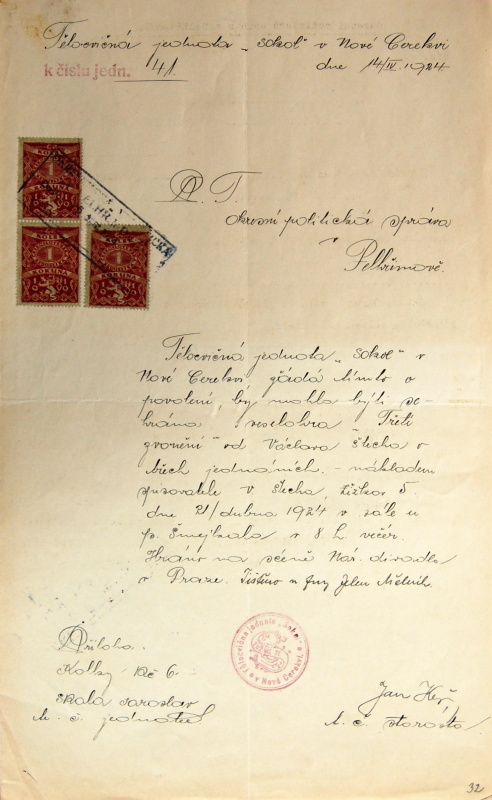 Tělocvičná jednota „Sokol" v Nové Cerekvi
k číslu jedn. 41.
dne 14/IV. 1924
P. T.
okresní politická správa
v
Pelhřimově.
Tělocvičná jednota „Sokol" v
Nové Cerekvi žádá tímto o
povolení, by mohla býti se-
hrána veselohra „Třetí
zvonění" od Václava Štecha o
třech jednáních, - nákladem
spisovatele V. Štecha, Žižkov 5.
dne 21/dubna 1924 v sále u
p. Šmejkala v 8 h. večer.
Hráno na scéně Nár. divadla
v Praze. Tištěno u fmy Jelen Mělník.
Příloha
Kolky Kč 6
Skala Jaroslav
t. č. jednatel
Tělocvičná jednota „Sokol"
v Nové Cerekvi
Jan Keř
t. č. starosta
KORUNA
1
KORUNA
1
KORUNA
1
32